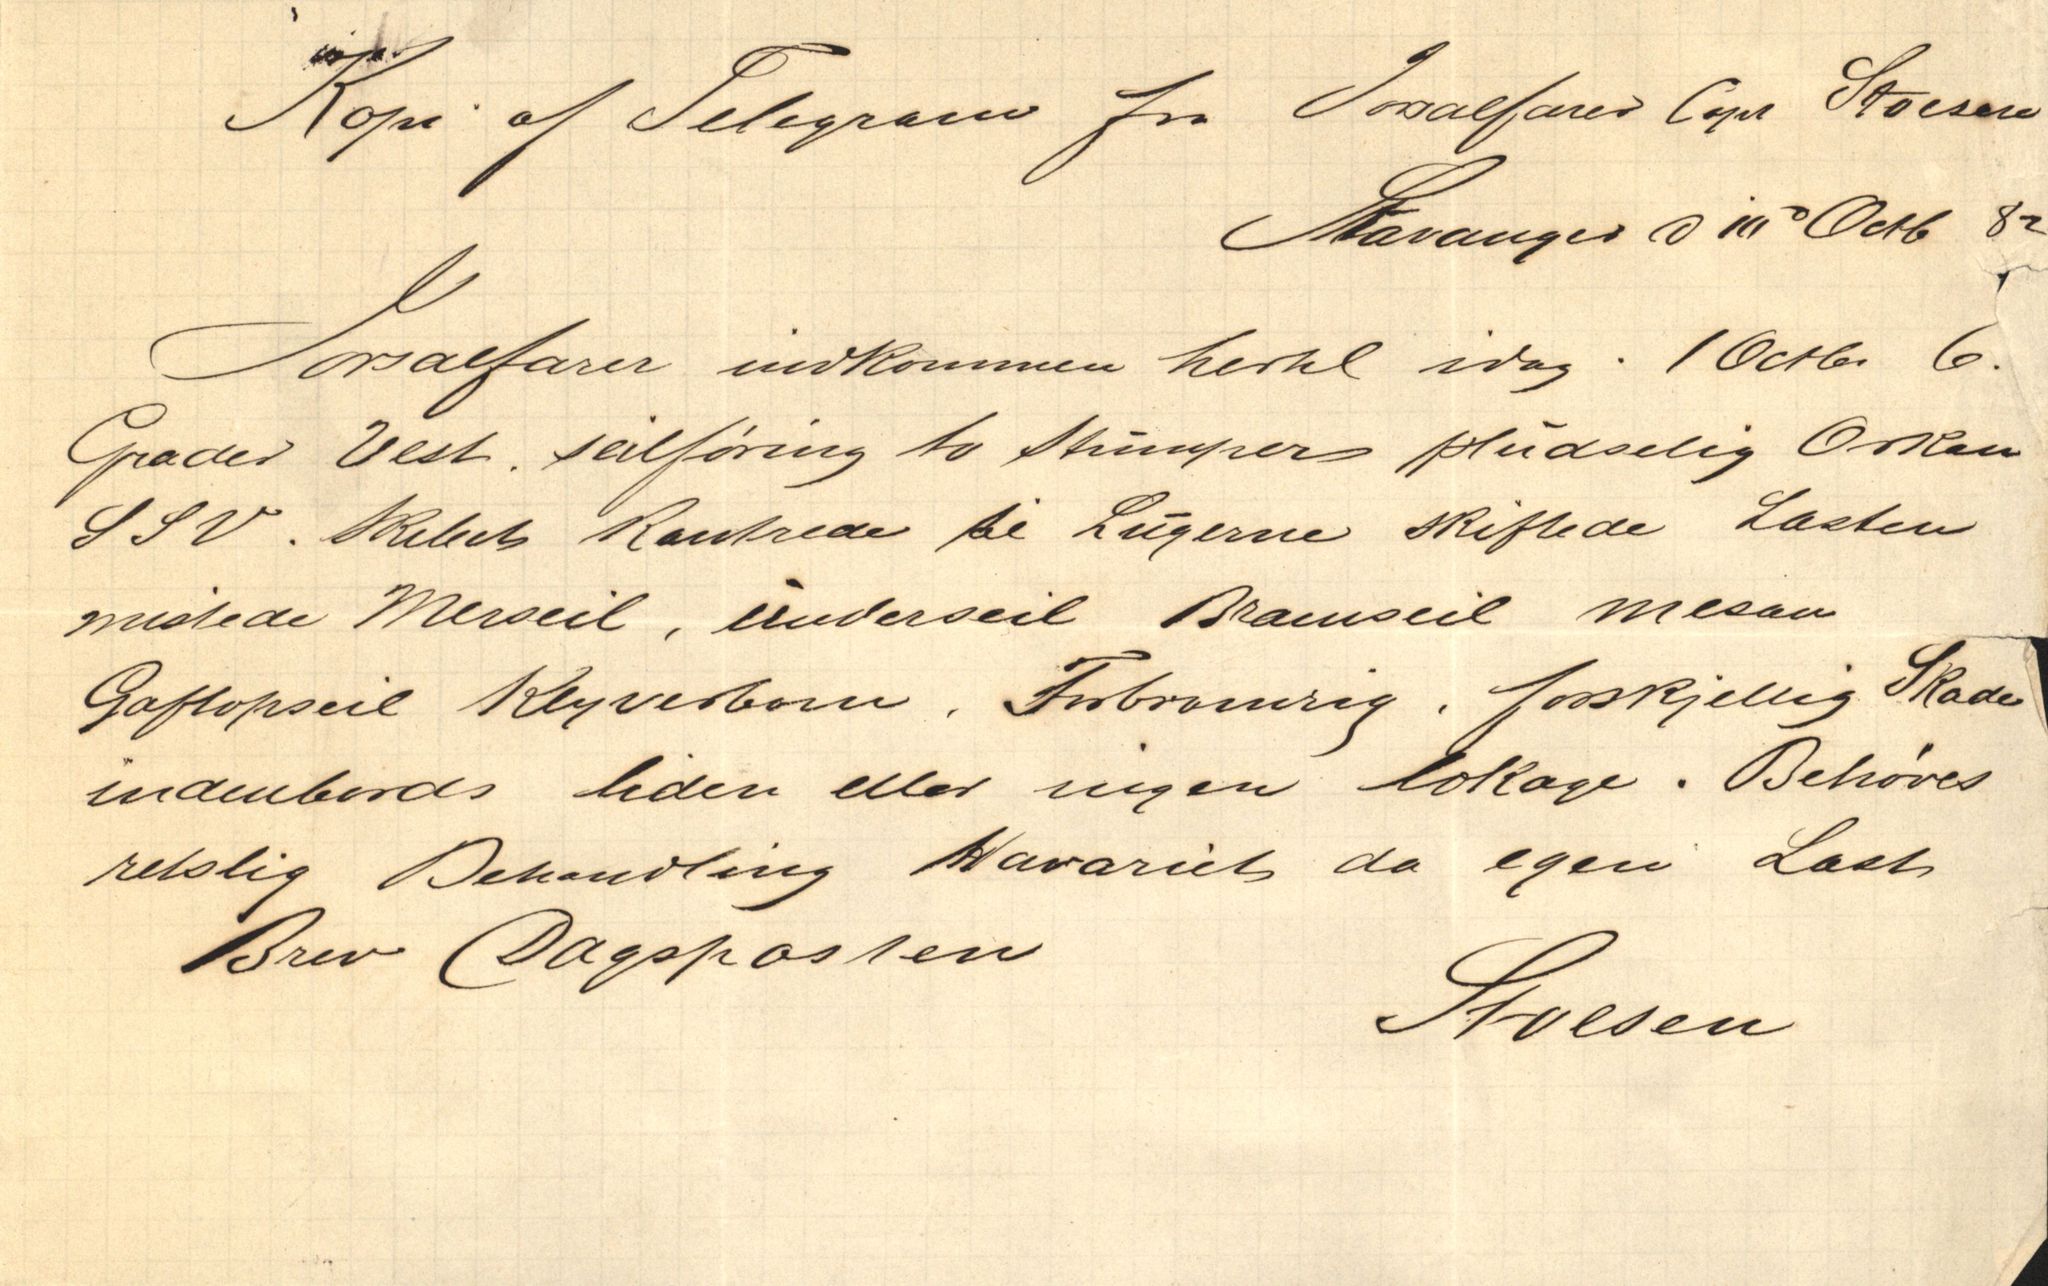 Kopi af Telegram fra Jorsalfarer Capt Stoesen
Stavanger d Octb 82
Jorsalfarer indkommen hertil idag. 1 Octbr 6.
Grader Vest. seilføring to Stumpers pludselig Orkan
SSV. Skibet kantrede til Lugerne skiftede Lasten
mistede Merseil, underseil Bramseil mesan
Gaftopseil Klyverbom. Forbramrig. forskjellig Skade
indenbords liden eller ingen lækage. Behøves
retslig Behandling Havariet da egen Last
Brev Dagsposten
Stoesen